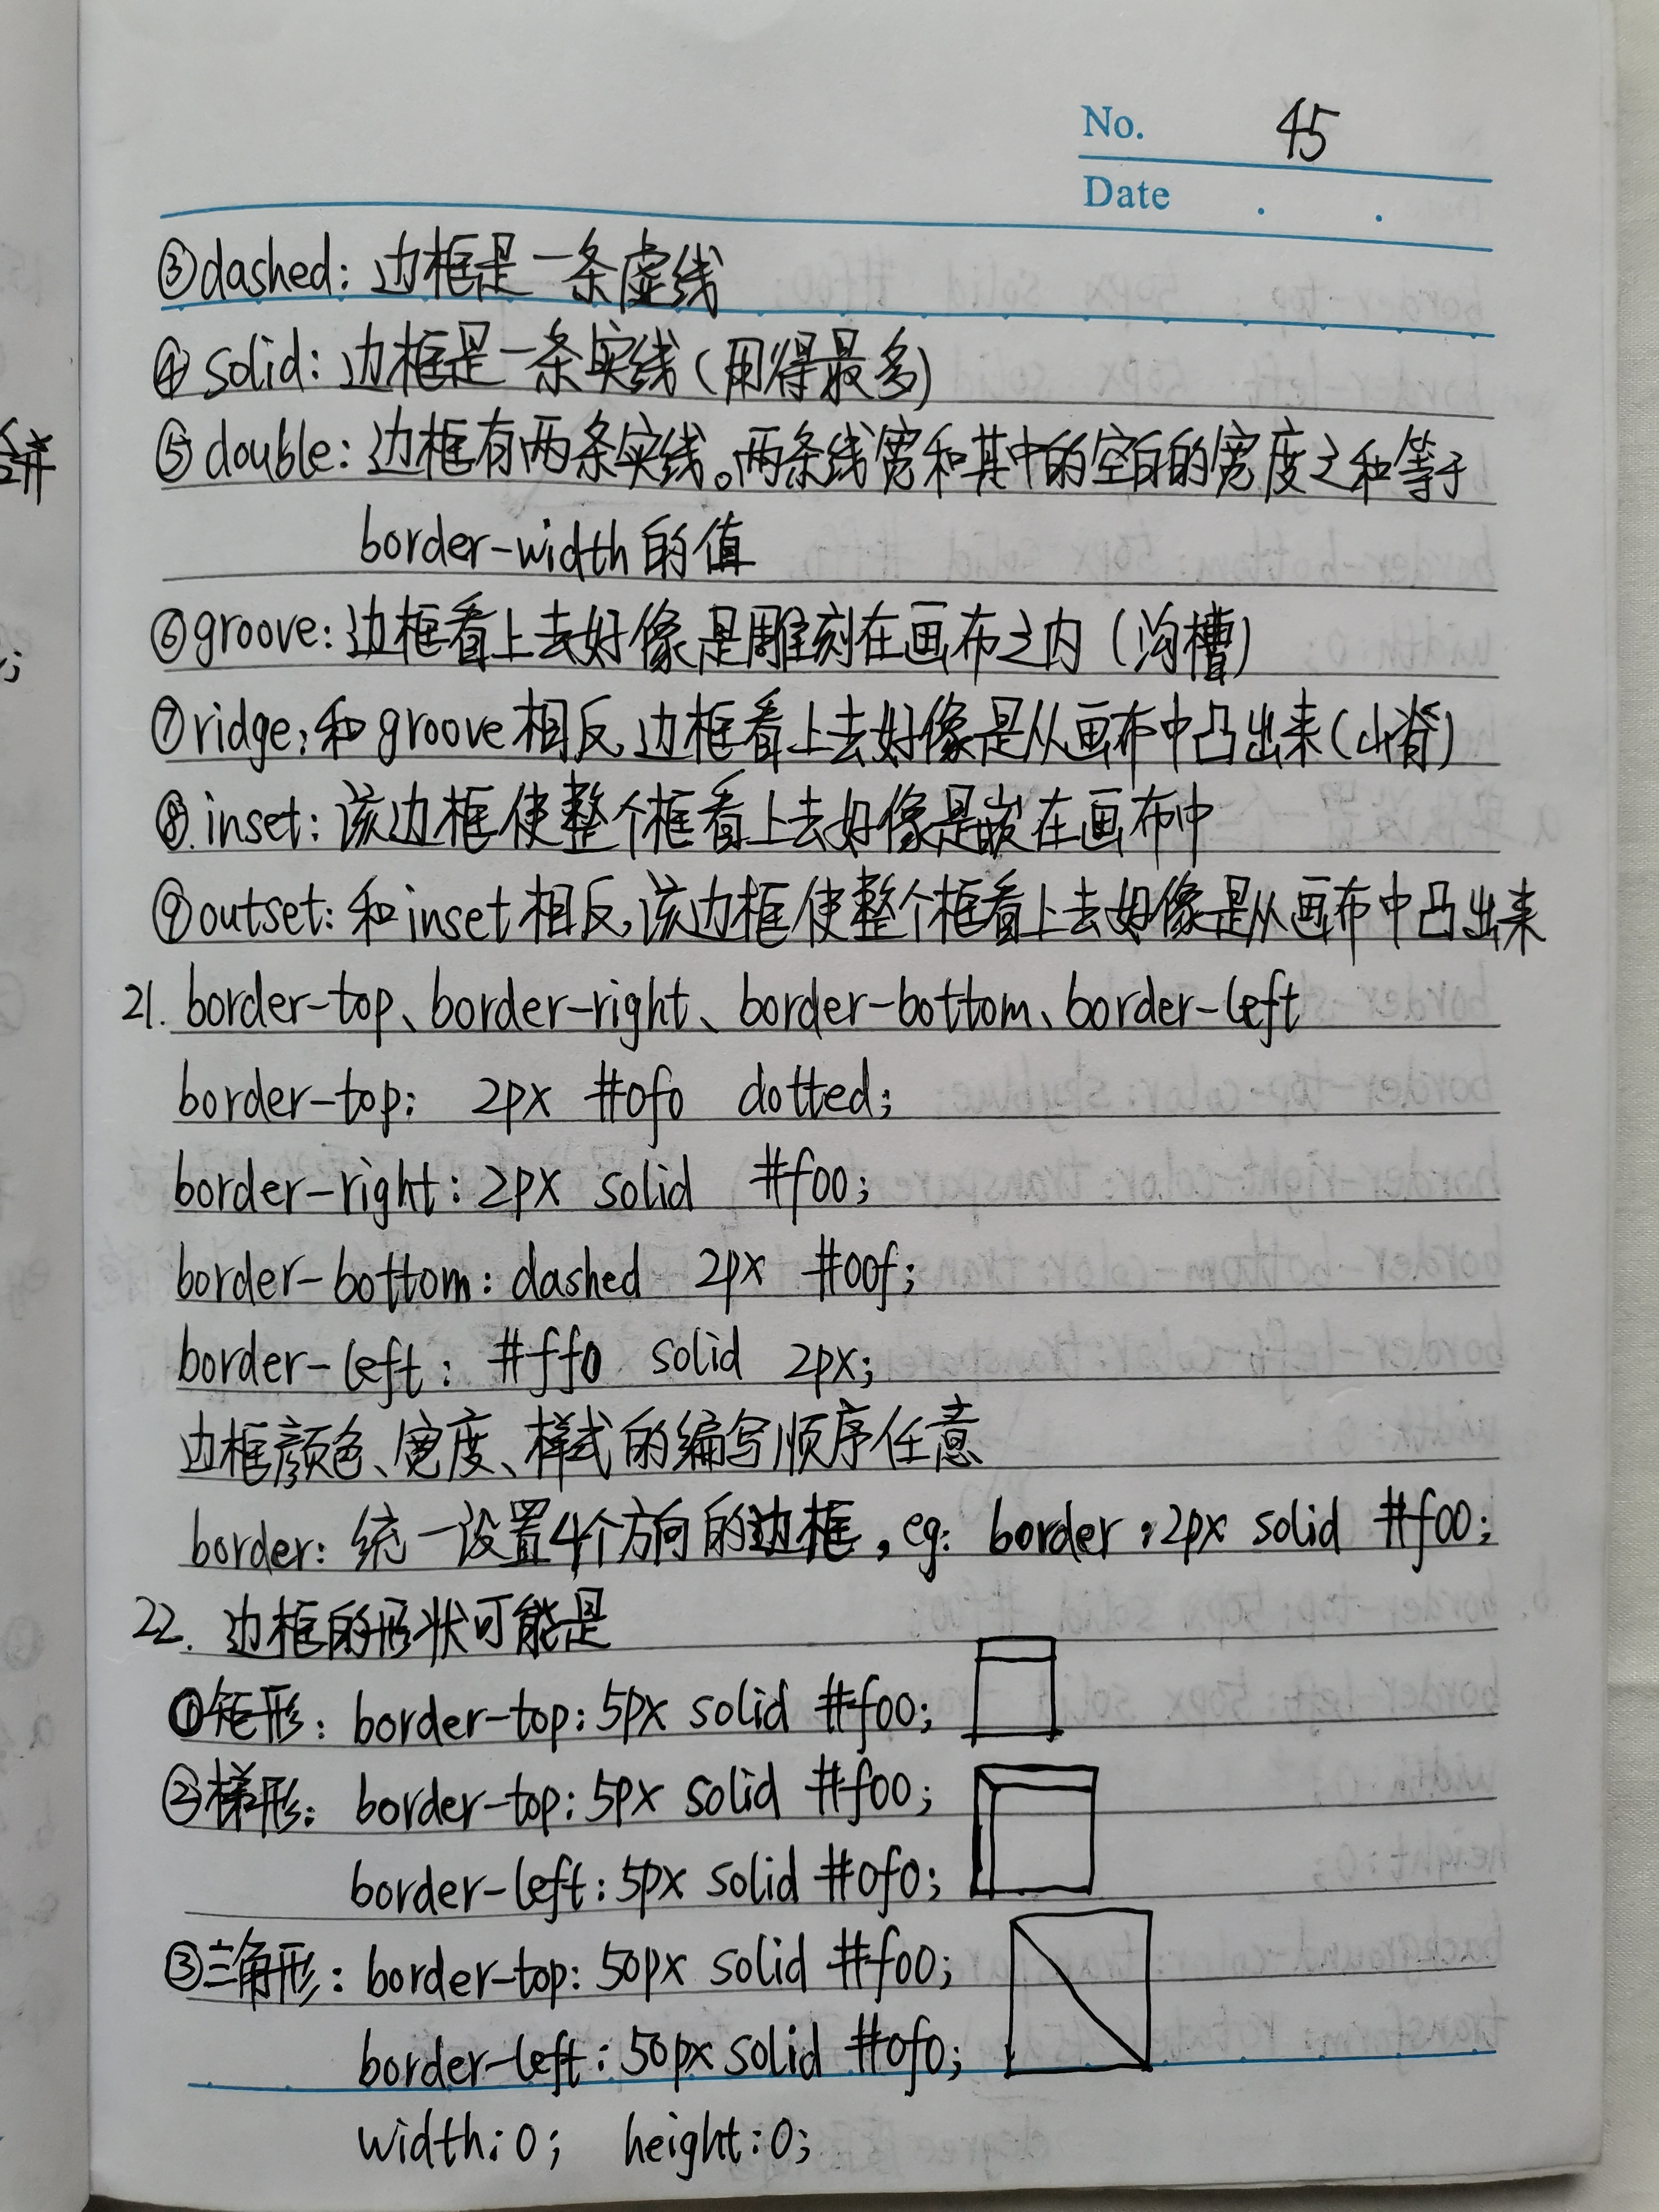 No. 45
Date . .
③dashed: 边框是一条虚线
④solid: 边框是一条实线(用得最多)
⑤double: 边框有两条实线。两条线宽和其中的空白的宽度之和等于
border-width的值
⑥groove: 边框看上去好像是雕刻在画布之内(沟槽)
⑦ridge: 和groove相反,边框看上去好像是从画布中凸出来(山脊)
⑧.inset: 该边框使整个框看上去好像是嵌在画布中
⑨outset: 和inset相反,该边框使整个框看上去好像是从画布中凸出来
21. border-top、border-right、border-bottom、border-left
border-top: 2px #0f0 dotted;
border-right: 2px solid #f00;
border-bottom: dashed 2px #00f;
border-left: #ff0 solid 2px;
边框颜色、宽度、样式的编写顺序任意
border: 统一设置4个方向的边框,eg: border:2px solid #f00;
22. 边框的形状可能是
①矩形: border-top: 5px solid #f00;
②梯形: border-top: 5px solid #f00;
border-left: 5px solid #0f0;
③三角形: border-top: 50px solid #f00;
border-left: 50px solid #0f0;
width: 0; height: 0;